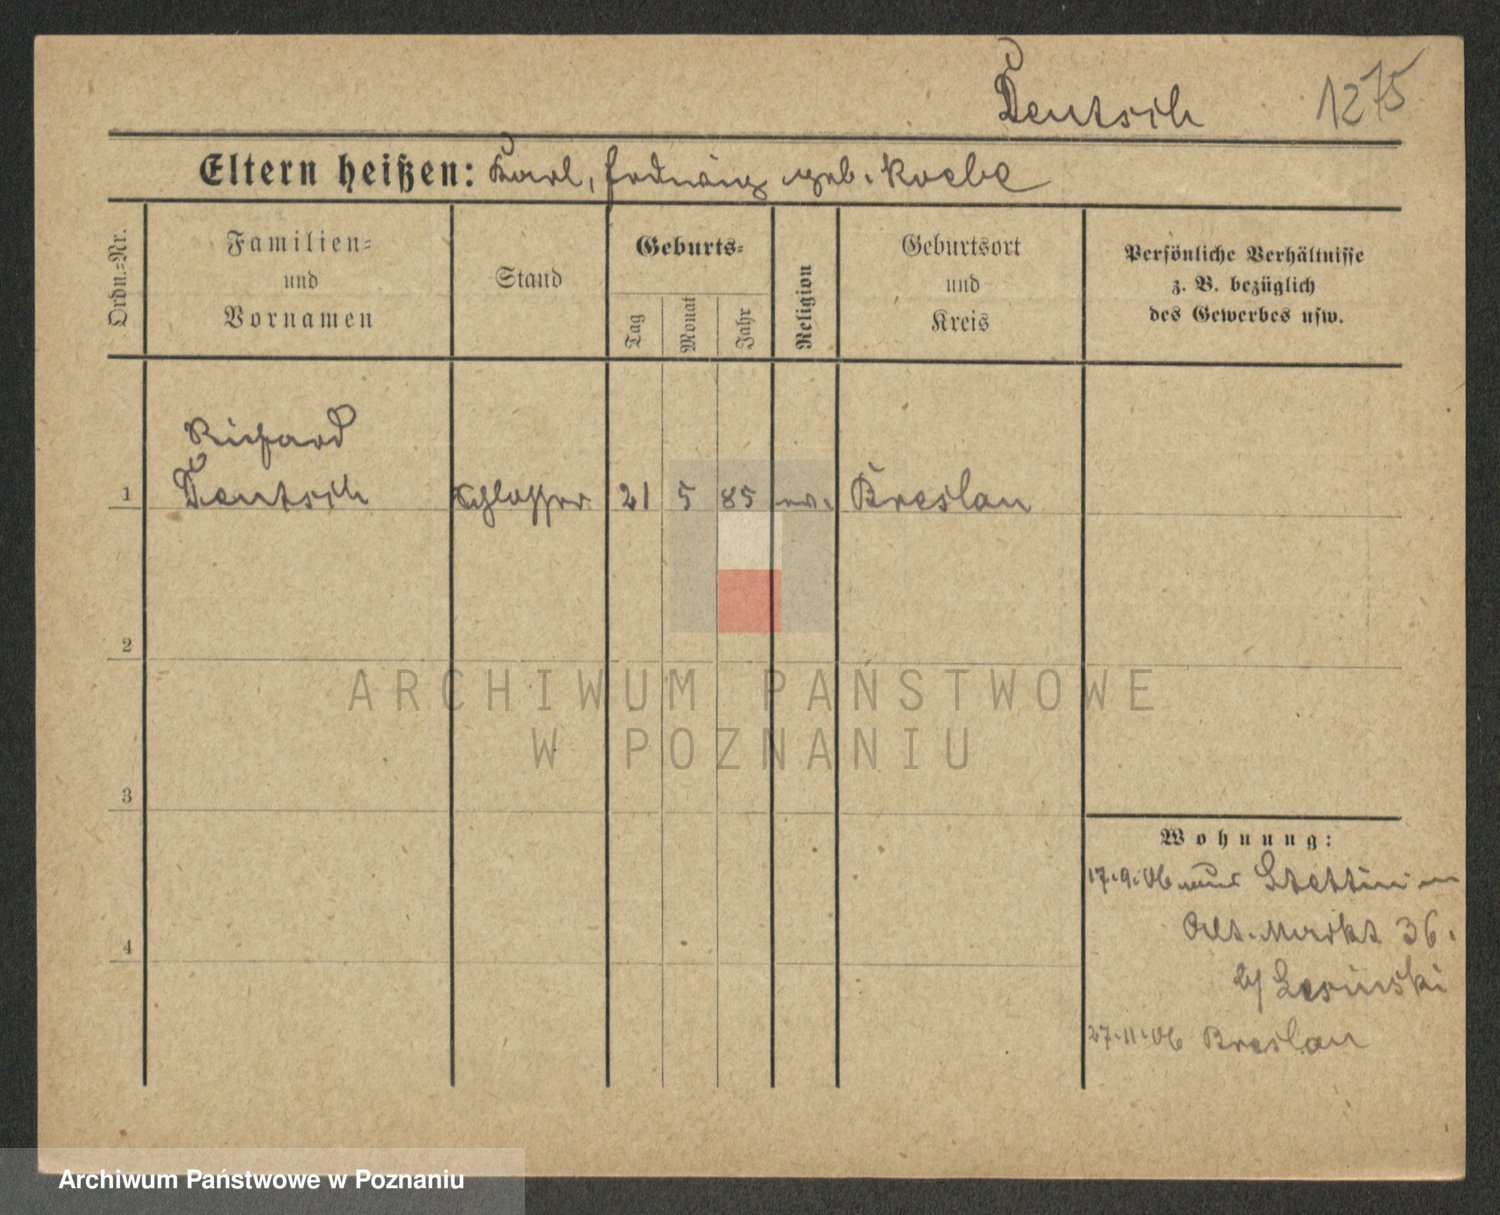 Deutsch 1275
Eltern heißen: Karl, Hedwig geb. Koebe
Ordn.=Nr.
Familien=
und
Vornamen
Stand
Geburts=
Tag
Monat
Jahr
Religion
Geburtsort
und
Kreis
Persönliche Verhältnisse
z. B. bezüglich
des Gewerbes usw.
Richard
1 Deutsch Schlosser 21 5 85 ev. Breslau
2
3
4
Wohnung:
17.9.06 aus Stettin
Alt. Markt 36.
b/ Lesinski
27.11.06 Breslau
ARCHIWUM PAŃSTWOWE
W POZNANIU
Archiwum Państwowe w Poznaniu